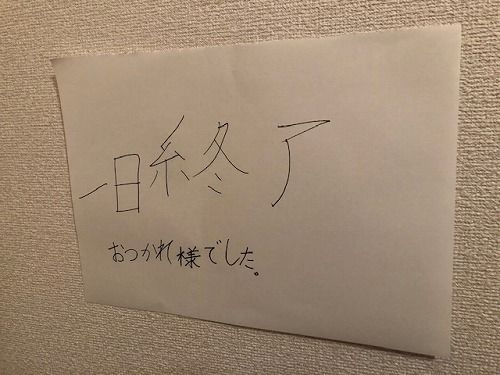 一日終了
おつかれ様でした。